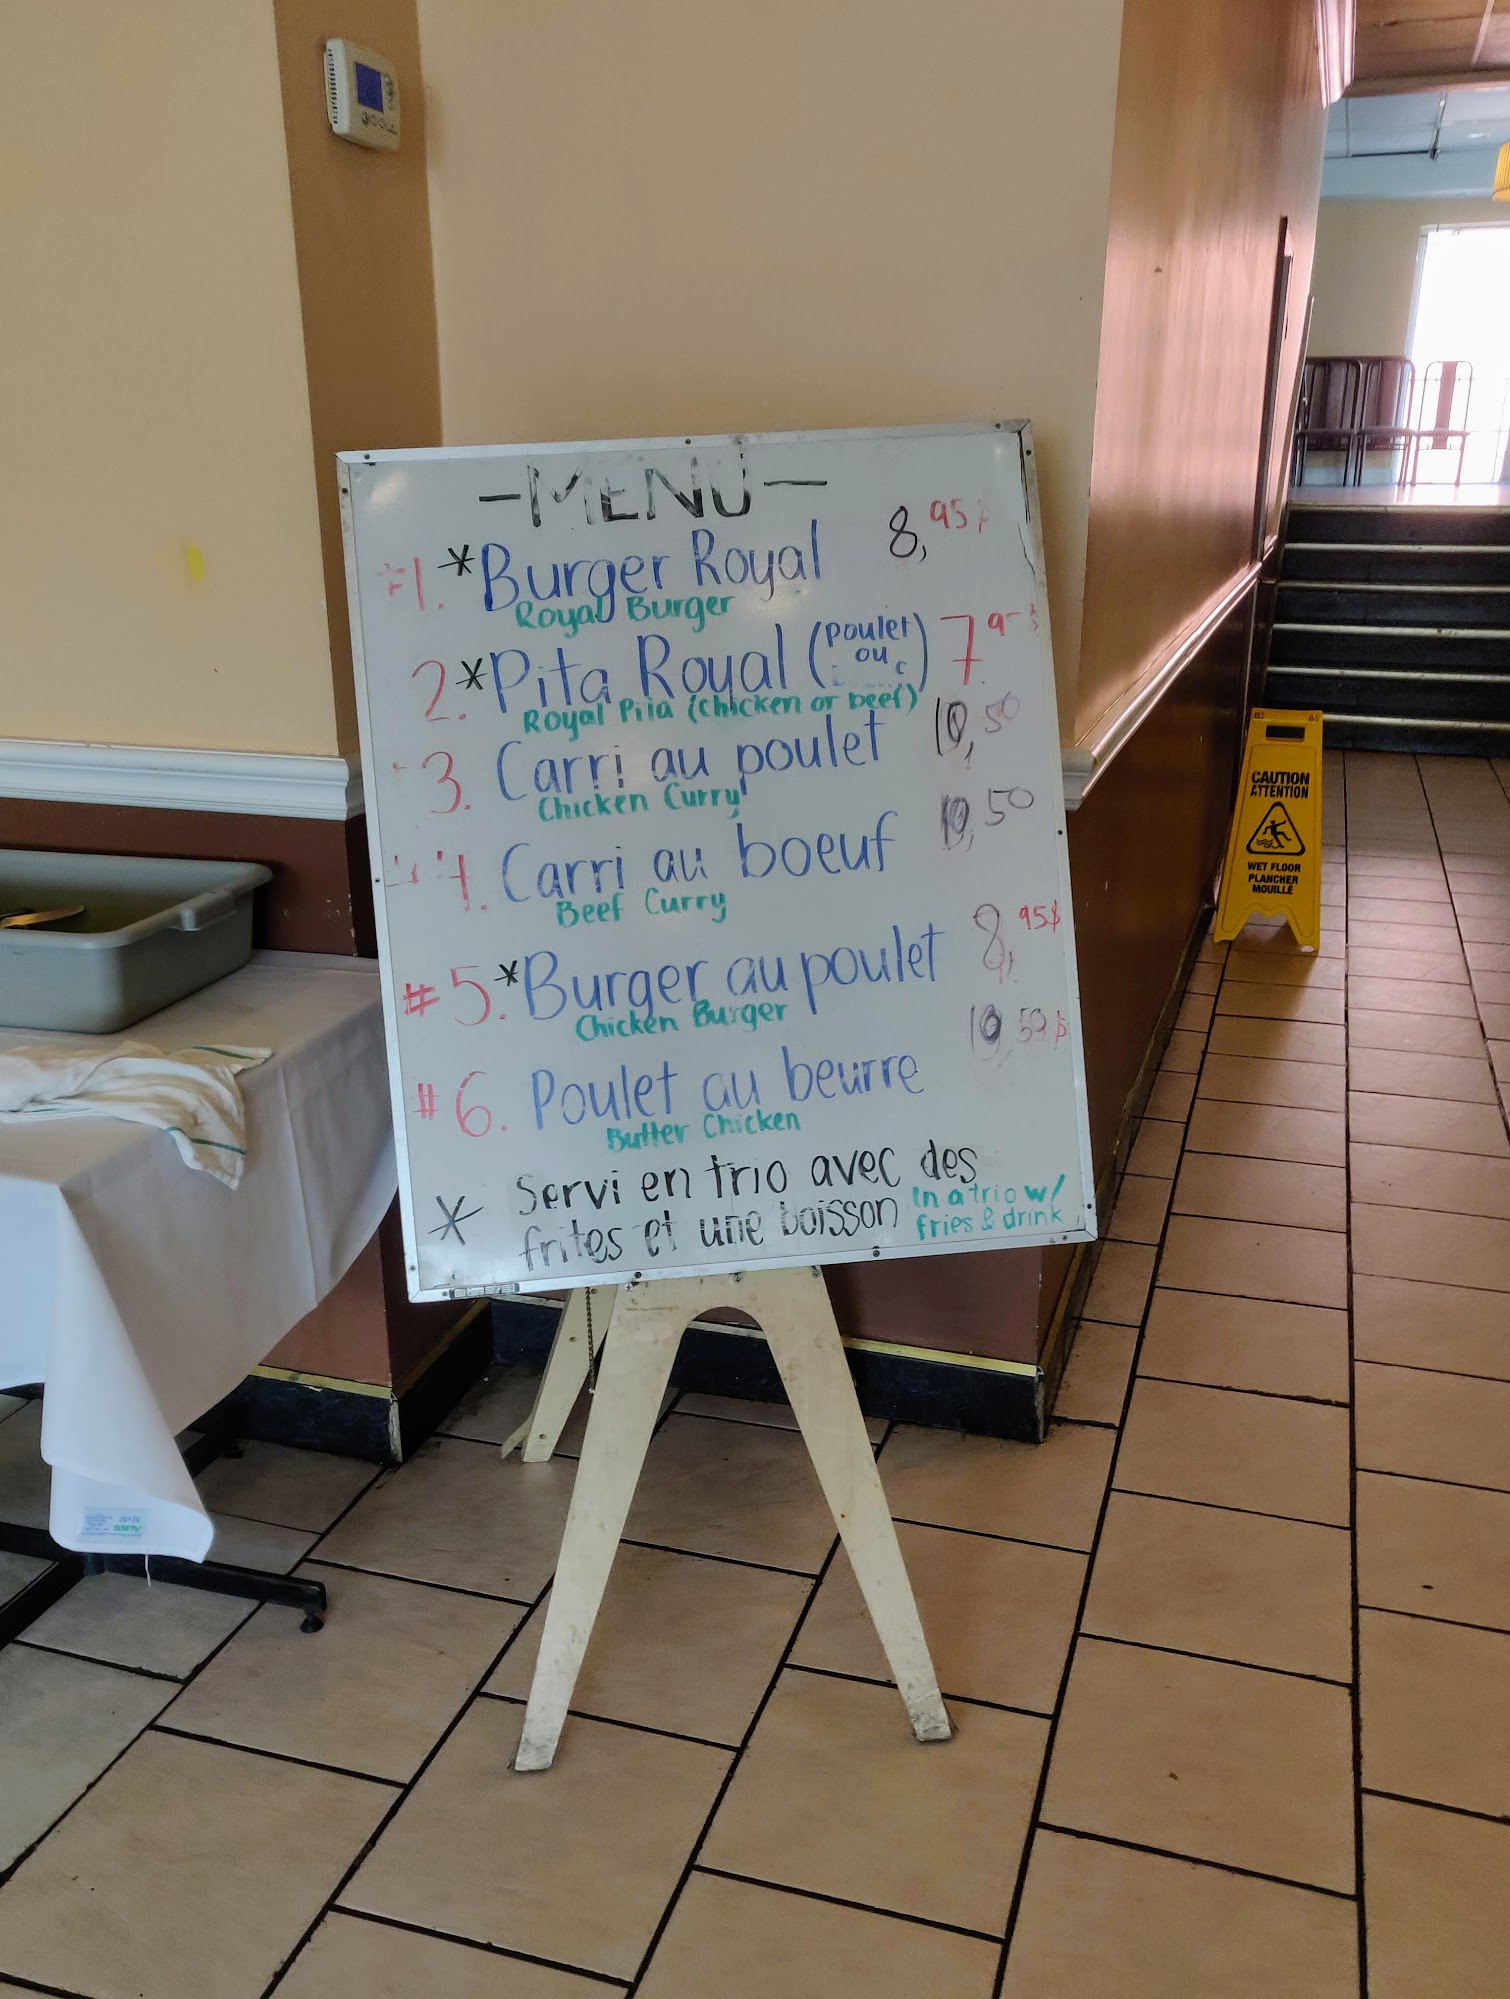 -MENU-
#1. *Burger Royal 8,95$
Royal Burger
2. *Pita Royal (poulet ou) 7.
Royal Pita (chicken or beef)
3. Carri au poulet 10,50
Chicken Curry
4. Carri au boeuf 10,50
Beef Curry
#5. *Burger au poulet 8,95$
Chicken Burger
#6. Poulet au beurre 10,50$
Butter Chicken
* Servi en trio avec des
frites et une boisson
In a trio w/
fries & drink
CAUTION
ATTENTION
WET FLOOR
PLANCHER
MOUILLÉ